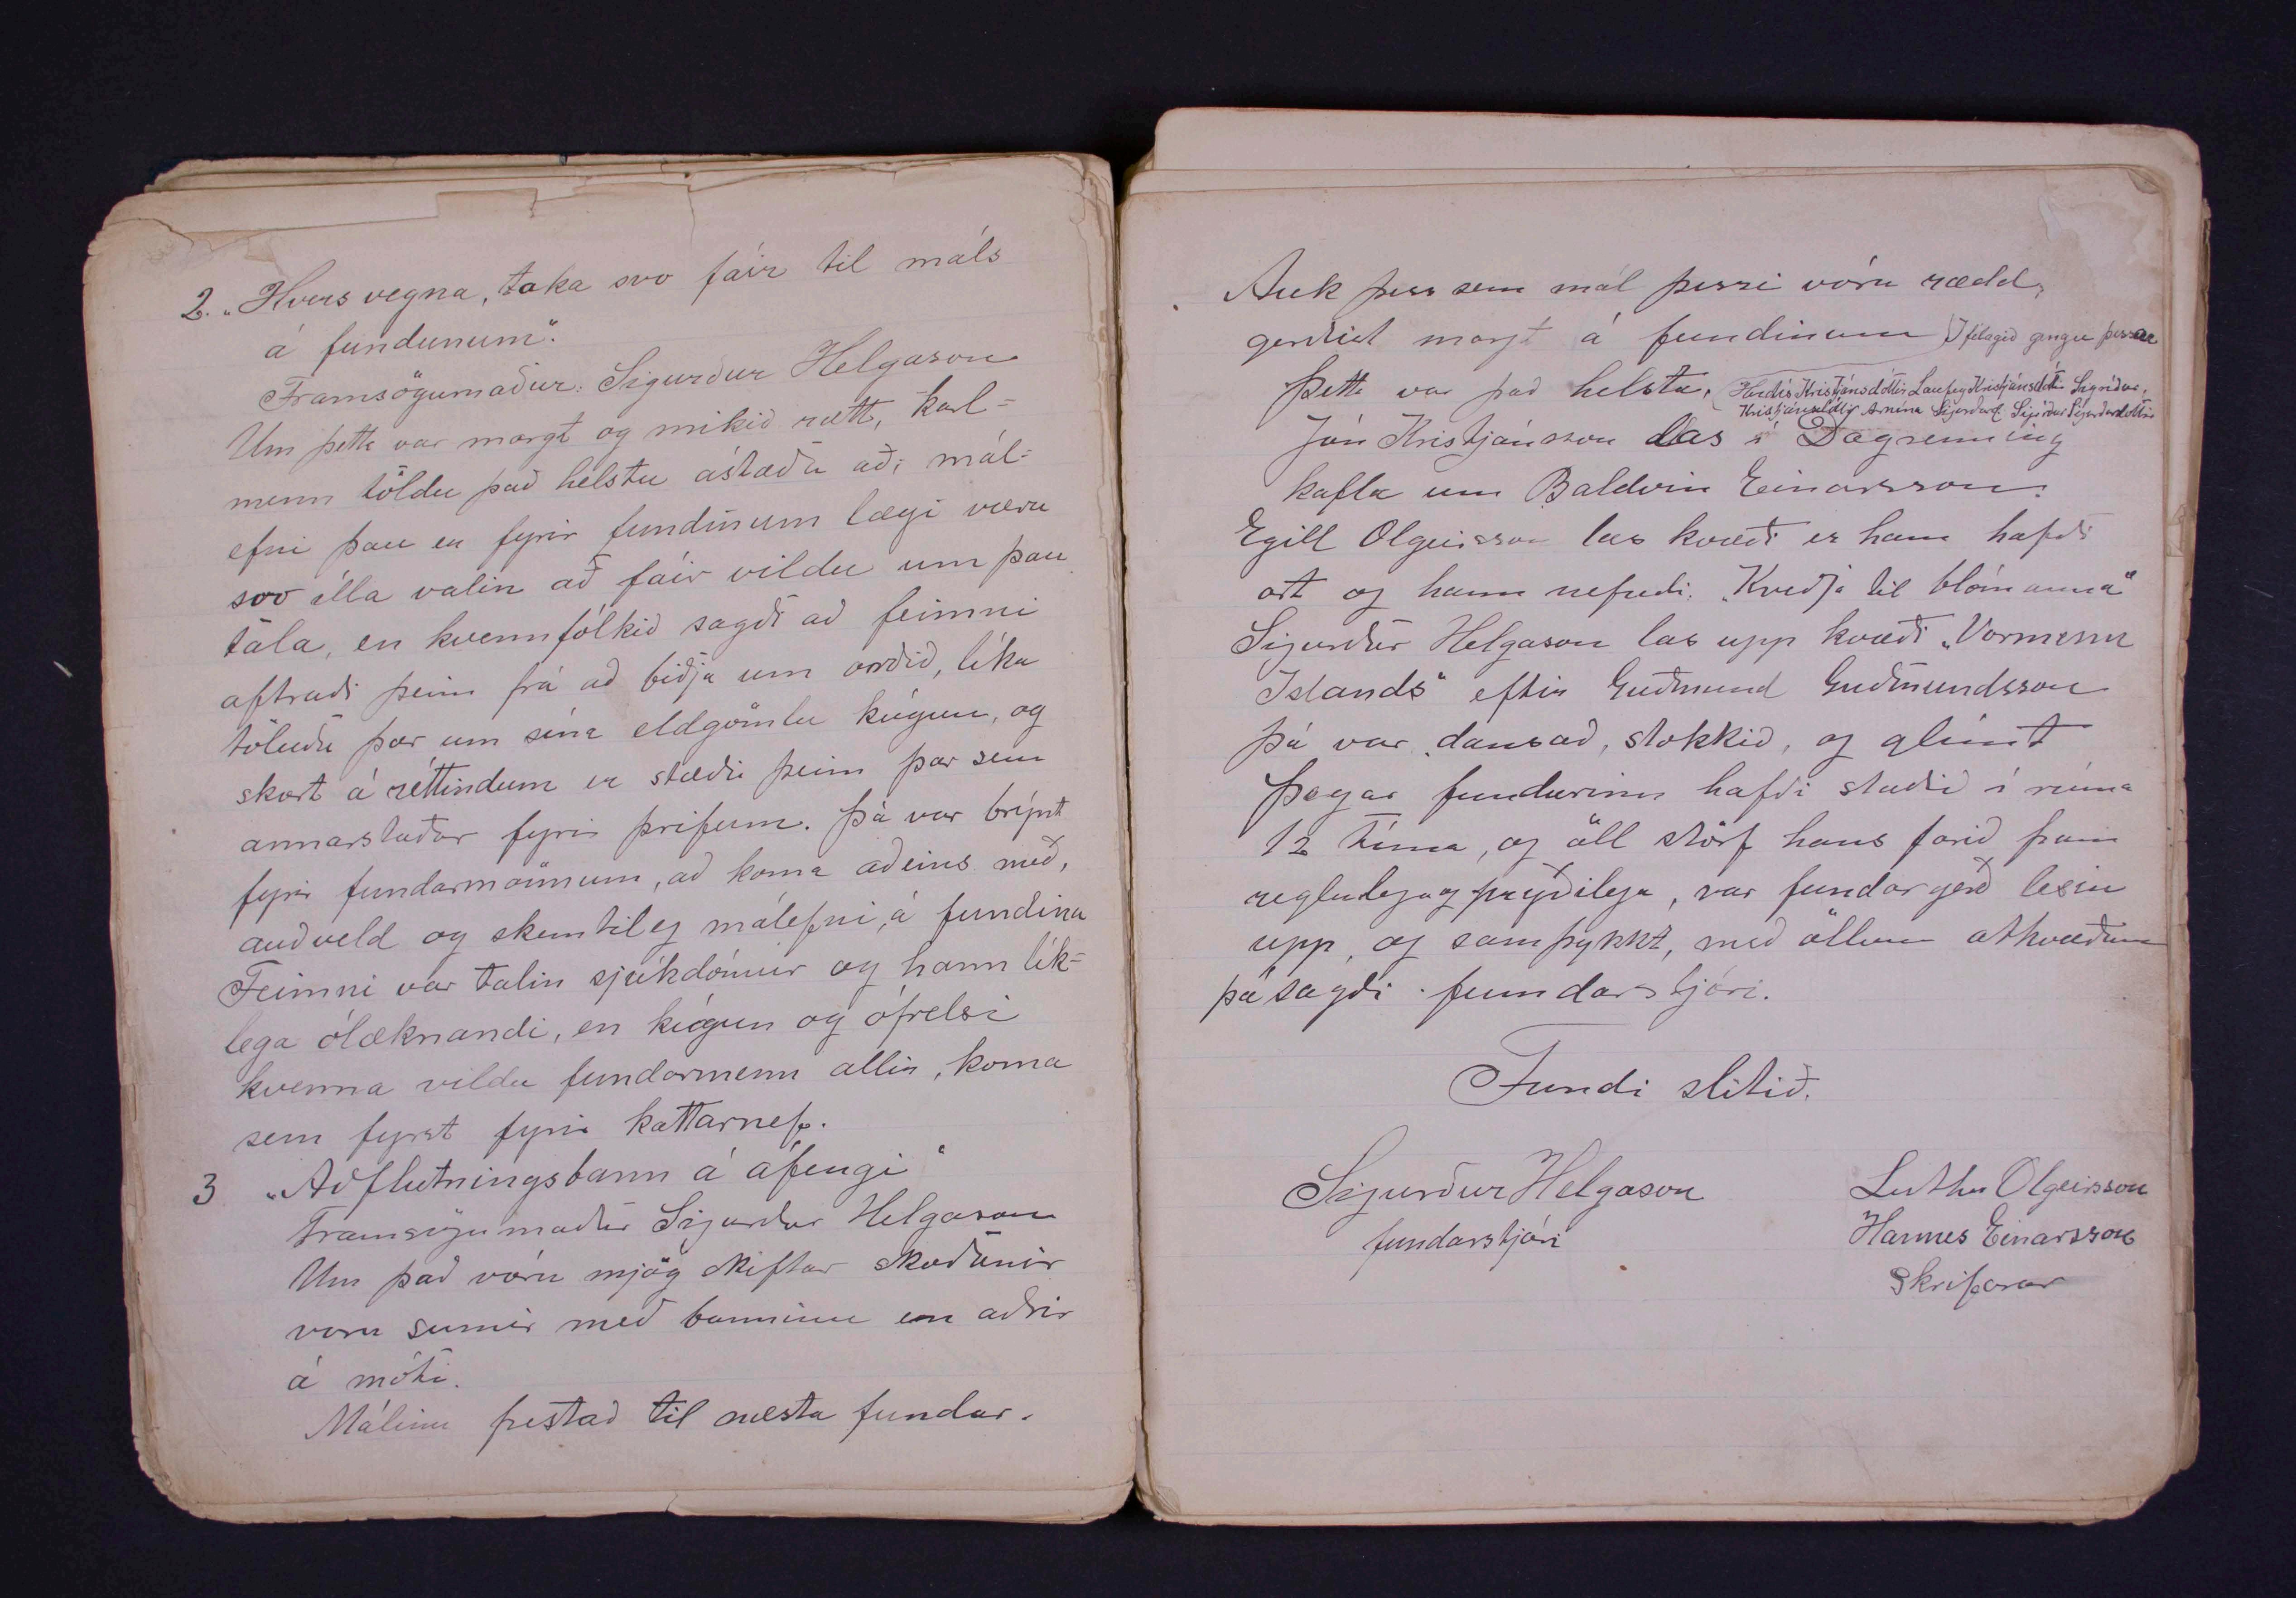 2. „Hvers vegna, taka svo fáir til máls
á fundunum“.
Framsögumaður: Sigurður Helgason
Um þetta var margt og mikið rætt, karl=
menn töldu það helstu ástæðu að; mál=
efni þau er fyrir fundinum lægi væru
svo illa valin að fáir vildu um þau
tala, en kvennfólkið sagði að feimni
aftraði þeim frá að biðja um orðið, líka
töluðu þær um sína eldgömlu kúgun, og
skort á réttindum er stæði þeim þar sem
annarstaðar fyrir þrifum. Þá var brýnt
fyrir fundarmönnum, að koma aðeins með,
auðveld og skemtileg málefni, á fundina
Feimni var talin sjúkdómur og hann lík=
lega ólæknandi, en kúgun og ófrelsi
kvenna vildu fundarmenn allir, koma
sem fyrst fyrir kattarnef.
3 „Aðflutningsbann á áfengi“
Framsögumaður Sigurður Helgason
Um það vóru mjög skiftar skoðanir
voru sumir með banninu en aðrir
á móti.
Málinu frestað til næsta fundar.
Auk þess sem mál þessi vóru rædd,
gerðist margt á fundinum Í félagið gengu þessar
Þetta var það helsta, Herdís Kristjánsdóttir Laufey Kristjánsdóttir Sigríður
Kristjánsdóttir Arnína Sigurðard Sigríður Sigurðardóttir
Jón Kristjánsson las í Dagrenning
kafla um Baldvin Einarsson.
Egill Olgeirsson las kvæði er hann hafði
ort og hann nefndi. „Kveðja til blómanna“
Sigurður Helgason las upp kvæði „Vormenn
Íslands“ eftir Guðmund Guðmundsson
Þá var dansað, stokkið, og glímt
Þegar fundurinn hafði staðið í rúma
12 tíma, og öll störf hans farið fram
reglulega og prýðilega, var fundargerð lesin
upp, og samþykkt, með öllum atkvæðum
þá sagði fundarstjóri.
Fundi slitið.
Sigurður Helgason
fundarstjóri
Luther Olgeirsson
Hannes Einarsson
Skrifarar